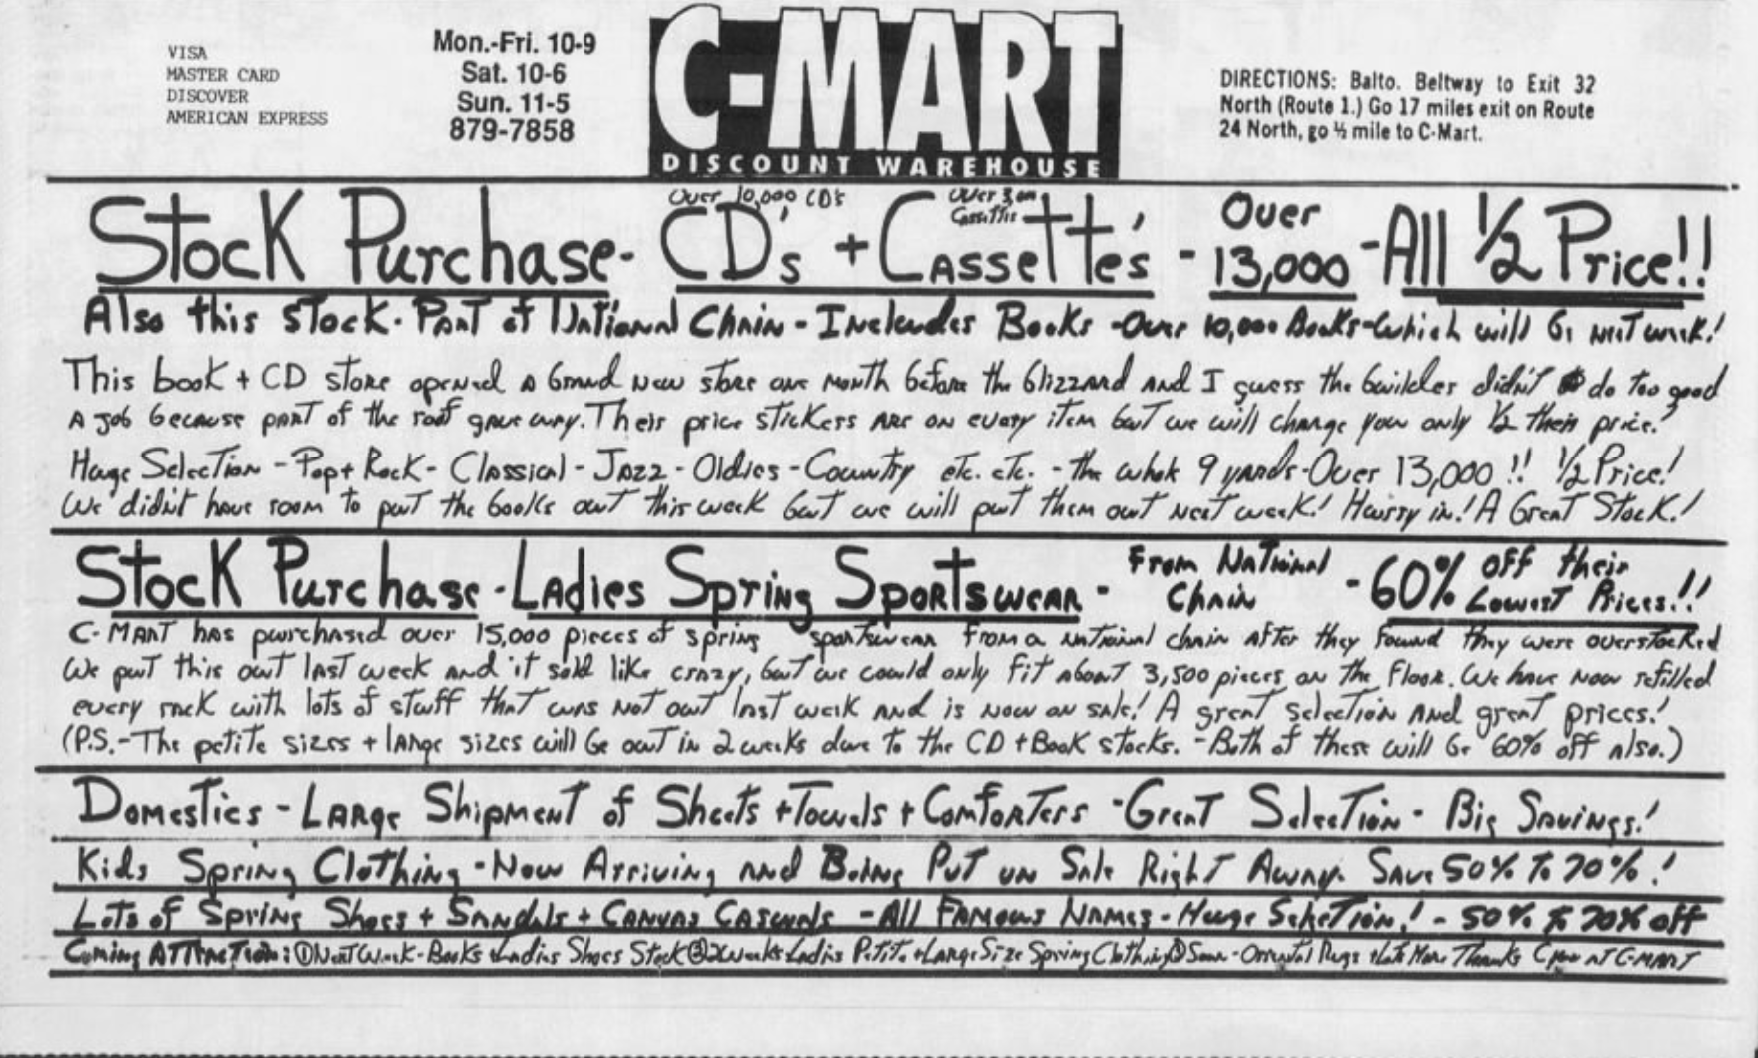 VISA
MASTER CARD
DISCOVER
AMERICAN EXPRESS
Mon.-Fri. 10-9
Sat. 10-6
Sun. 11-5
879-7858
C-MART
DISCOUNT WAREHOUSE
DIRECTIONS: Balto. Beltway to Exit 32
North (Route 1.) Go 17 miles exit on Route
24 North, go ½ mile to C-Mart.
Over 10,000 CD's
Over 3,000
Cassettes
Stock Purchase- CD's + Cassette's - Over 13,000 - All ½ Price!!
Also this Stock - Part of National Chain - Includes Books - Over 10,000 Books - which will be next week!
This book + CD store opened a brand new store one month before the blizzard and I guess the builder didn't do too good
a job because part of the roof gave way. Their price stickers are on every item but we will charge you only ½ their price!
Huge Selection - Pop + Rock - Classical - Jazz - Oldies - Country etc. etc. - the whole 9 yards - Over 13,000!! ½ Price!
We didn't have room to put the books out this week but we will put them out next week! Hurry in! A Great Stock!
Stock Purchase - Ladies Spring Sportswear - From National Chain - 60% off their Lowest Prices!!
C-MART has purchased over 15,000 pieces of spring sportswear from a national chain after they found they were overstocked
We put this out last week and it sold like crazy, but we could only fit about 3,500 pieces on the floor. We have now refilled
every rack with lots of stuff that was not out last week and is now on sale! A great selection and great prices!
(P.S.-The petite sizes + large sizes will be out in 2 weeks due to the CD + Book stocks. - Both of these will be 60% off also.)
Domestics - Large Shipment of Sheets + Towels + Comforters - Great Selection - Big Savings!
Kids Spring Clothing - Now Arriving and Being Put on Sale Right Away. Save 50% to 70%!
Lots of Spring Shoes + Sandals + Canvas Casuals - All Famous Names - Huge Selection! - 50% to 70% off
Coming Attraction: ① Next Week - Books + Ladies Shoes Stock ② 2 Weeks Ladies Petite + Large Size Spring Clothing ③ Soon - Oriental Rugs + Lots More Thanks C you at C-MART